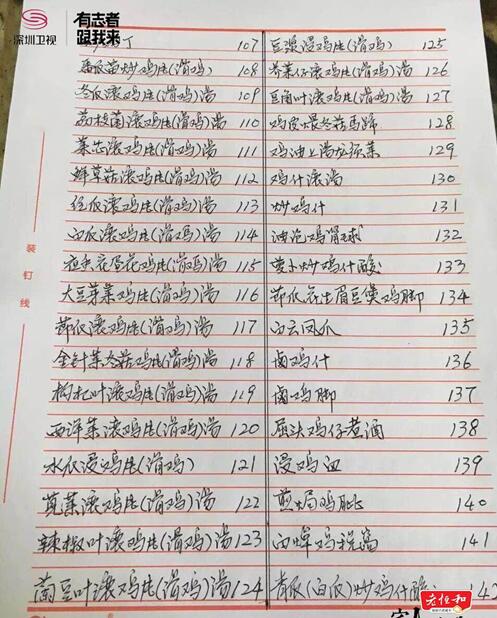 深圳卫视
有志者
跟我来
丁 107
番瓜苗炒鸡片(滑鸡) 108
冬瓜滚鸡片(滑鸡)汤 109
荔枝菌滚鸡片(滑鸡)汤 110
菜芯滚鸡片(滑鸡)汤 111
鲜草菇滚鸡片(滑鸡)汤 112
丝瓜滚鸡片(滑鸡)汤 113
白瓜滚鸡片(滑鸡)汤 114
夜来花蛋花鸡片(滑鸡)汤 115
大豆芽菜鸡片(滑鸡)汤 116
节瓜滚鸡片(滑鸡)汤 117
金针菜冬菇鸡片(滑鸡)汤 118
枸杞叶滚鸡片(滑鸡)汤 119
西洋菜滚鸡片(滑鸡)汤 120
水瓜浸鸡片(滑鸡) 121
苋菜滚鸡片(滑鸡)汤 122
辣椒叶滚鸡片(滑鸡)汤 123
豆叶滚鸡片(滑鸡)汤 124
豆浆浸鸡片(滑鸡) 125
芥菜仔滚鸡片(滑鸡)汤 126
豆角叶滚鸡片(滑鸡)汤 127
鸡皮煨冬菇马蹄 128
鸡油上汤龙须菜 129
鸡什滚汤 130
炒鸡什 131
油泡鸡肾球 132
萝卜炒鸡什酸 133
节瓜花生眉豆煲鸡脚 134
白云凤爪 135
卤鸡什 136
卤鸡脚 137
屈头鸡仔煮酒 138
浸鸡血 139
煎焗鸡肶 140
鸡 141
青瓜(白瓜)炒鸡什酸 142
装
钉
线
老任和